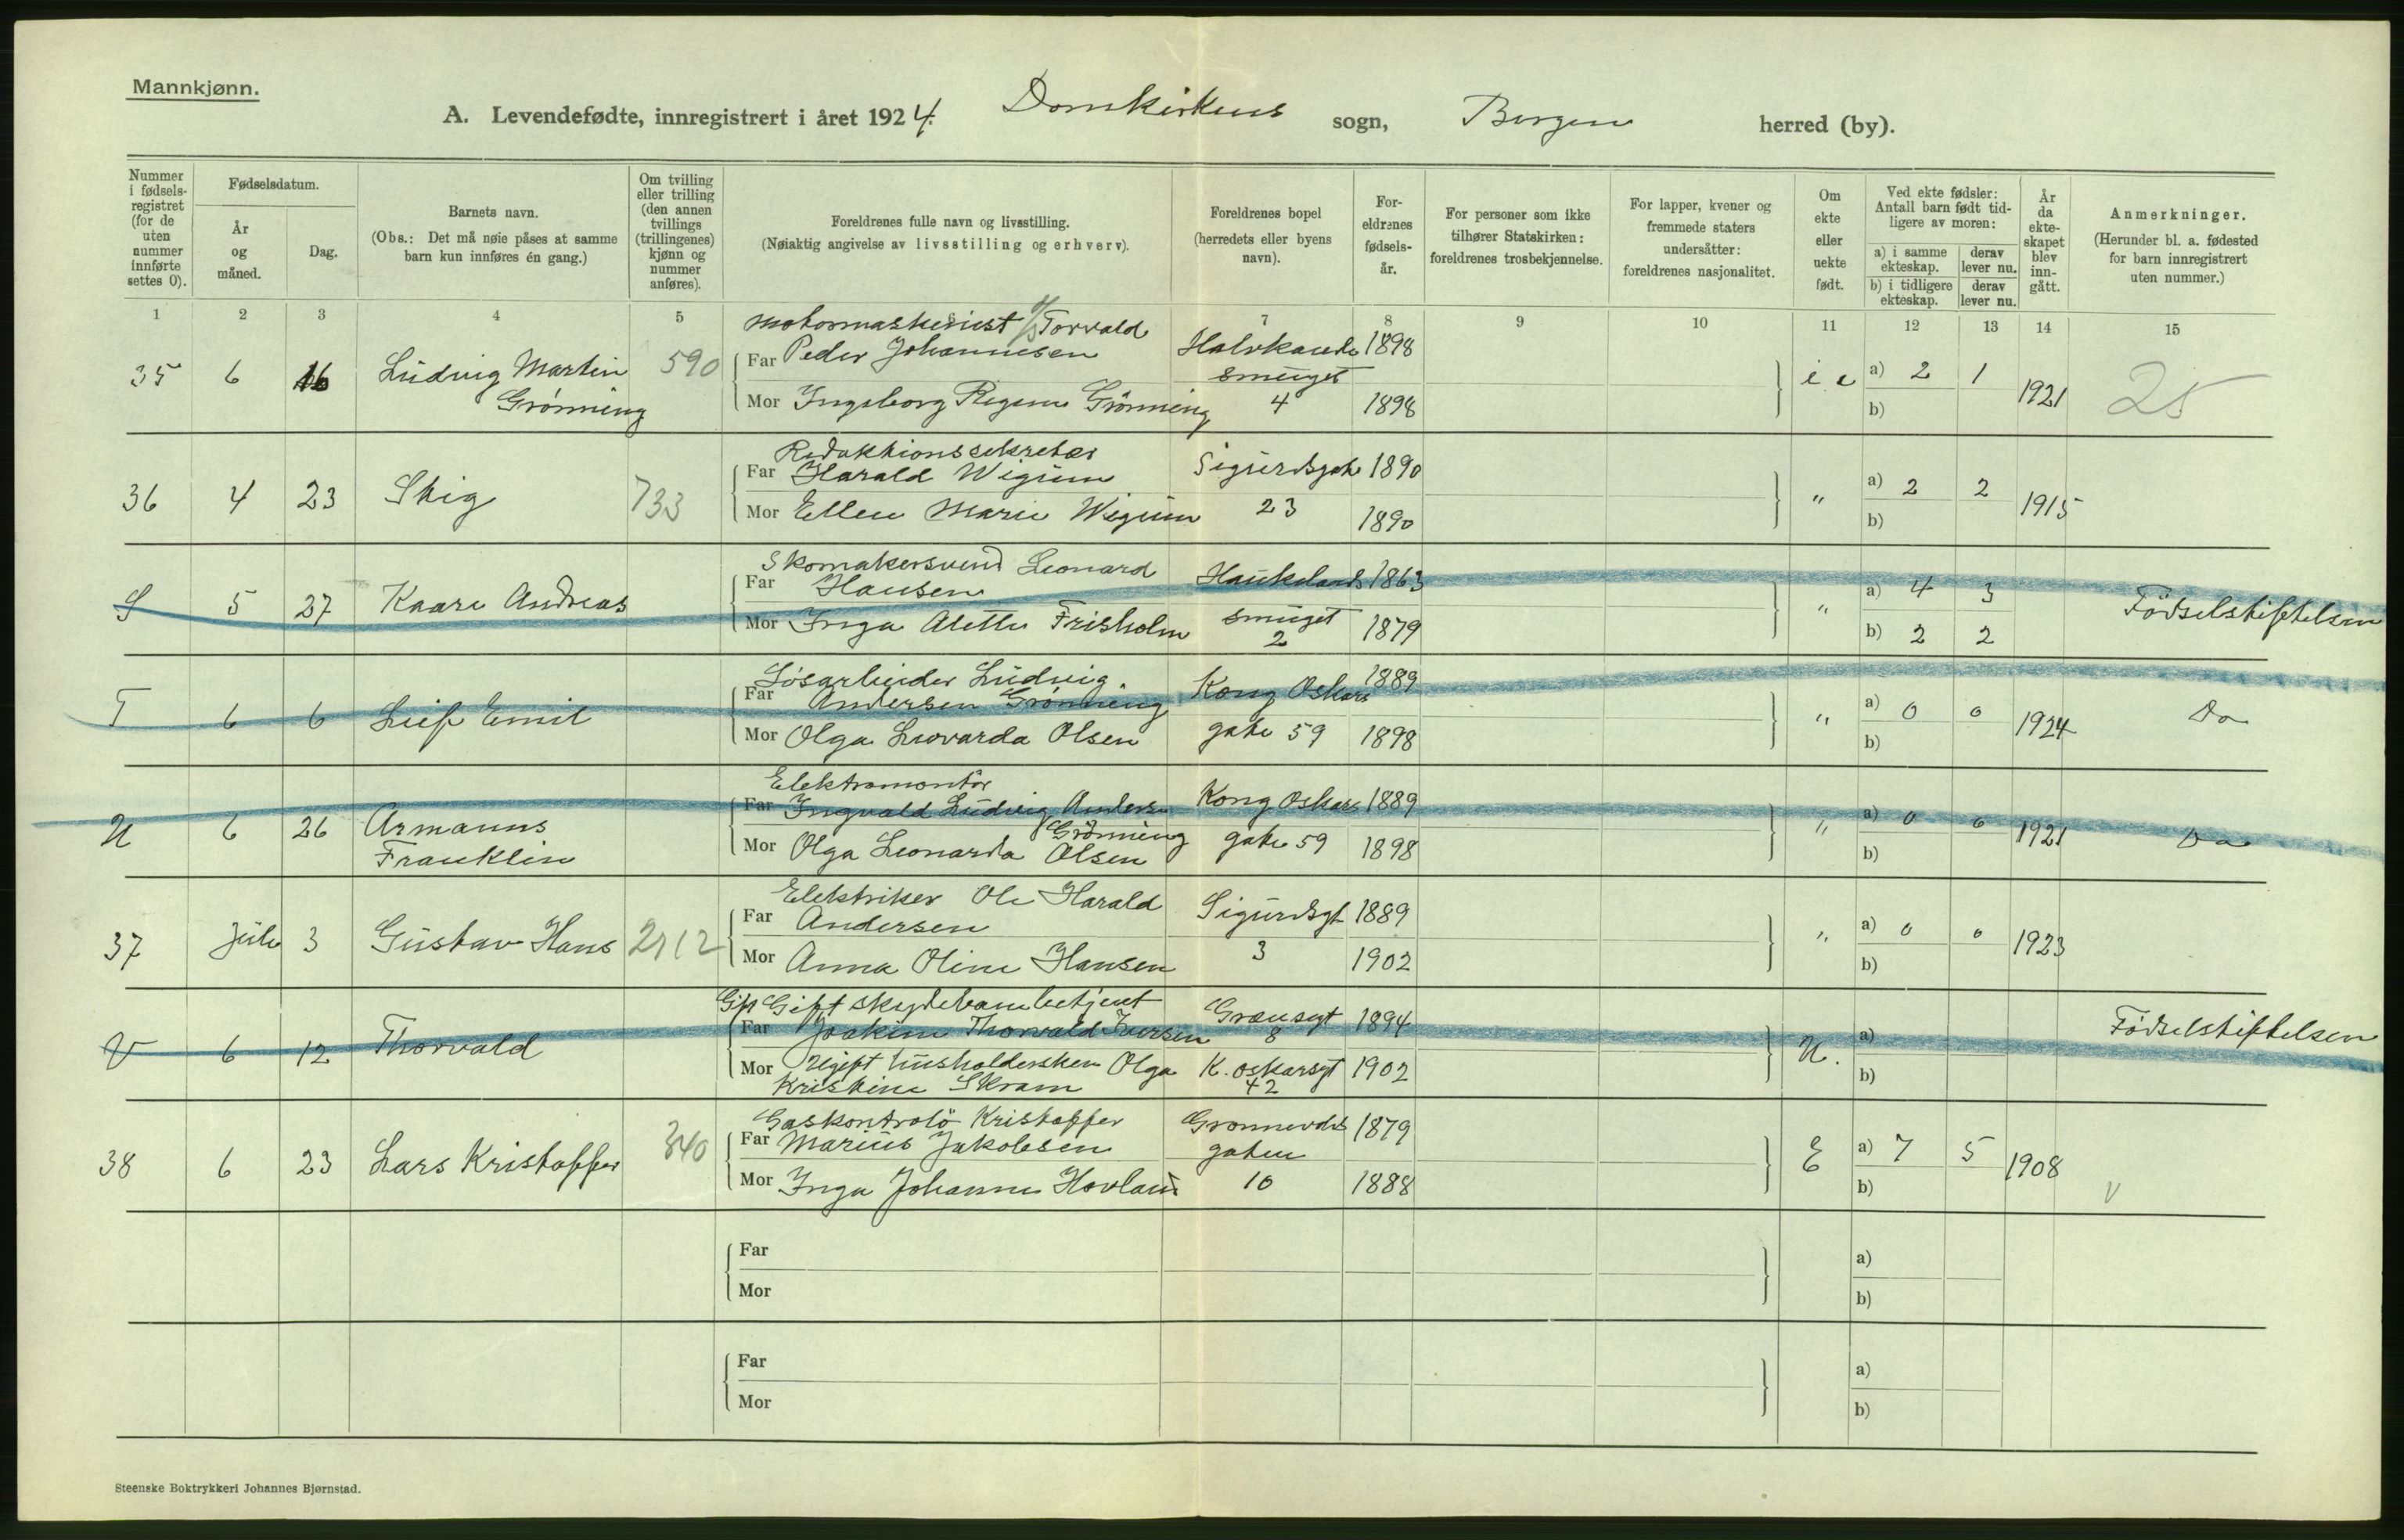 Mannkjønn.
A. Levendefødte, innregistrert i året 1924. Domkirkens sogn, Bergen herred (by).
Nummer i fødsels-registret (for de uten nummer innførte settes 0).
Fødselsdatum.
År og måned.
Dag.
Barnets navn.
(Obs.: Det må nøie påses at samme barn kun innføres én gang.)
Om tvilling eller trilling (den annen tvillings (trillingenes) kjønn og nummer anføres).
Foreldrenes fulle navn og livsstilling.
(Nøiaktig angivelse av livsstilling og erhverv).
Foreldrenes bopel (herredets eller byens navn).
For-eldrenes fødsels-år.
For personer som ikke tilhører Statskirken: foreldrenes trosbekjennelse.
For lapper, kvener og fremmede staters undersåtter: foreldrenes nasjonalitet.
Om ekte eller uekte født.
Ved ekte fødsler: Antall barn født tid-ligere av moren:
a) i samme ekteskap. derav lever nu.
b) i tidligere ekteskap. derav lever nu.
År da ekte-skapet blev inn-gått.
Anmerkninger.
(Herunder bl. a. fødested for barn innregistrert uten nummer.)
1 2 3 4 5 7 8 9 10 11 12 13 14 15
Torvald
35 6 16 Ludvig Martin 590 Far Peder Johannesen 1898
Grønning Mor Ingeborg Regine Grønning smuget 4 1898
a) 2 1 1921 25
b)
Redaktionssekretær
36 4 23 Stig 733 Far Harald Wigum Sigurdsgate 1890
Mor Ellen Marie Wigum 23 1890
" a) 2 2 1915
b)
Skomakersvend Leonard
S 5 27 Kaare Andreas Far Hansen Haukelands 1863
Mor Inga Alette Frisholm smuget 2 1879
" a) 4 3 Fødselsstiftelsen
b) 2 2
Løsarbeider Ludvig
T 6 6 Leif Emil Far Andersen Grønning Kong Oskars 1889
Mor Olga Olsen gate 59 1898
" a) 0 0 1924 Do
b)
Elektromontør
U 6 26 Armanns Franklin Far Ingvald Ludvig Andersen Grønning Kong Oskars 1889
Mor Olga Leonarda Olsen gate 59 1898
" a) 0 0 1921 Do
b)
Elektriker Ole Harald
37 Juli 3 Gustav Hans 2112 Far Andersen Sigurdsgt 1889
Mor Anna Oline Hansen 3 1902
" a) 0 0 1923
b)
Gift Gift
V 6 12 Thorvald Far Joakim Thorvald Iversen Grænsegt 8 1894
Mor Ugift husholderske Olga Kristine Skram K. Oskarsgt 42 1902
U. a) Fødselsstiftelsen
b)
Gaskontrolø Kristoffer
38 6 23 Lars Kristoffer 340 Far Marius Jakobsen gaten 1879
Mor Inga Johanne Hovland 10 1888
E a) 7 5 1908 v
b)
Far a)
Mor b)
Far a)
Mor b)
Steenske Boktrykkeri Johannes Bjørnstad.